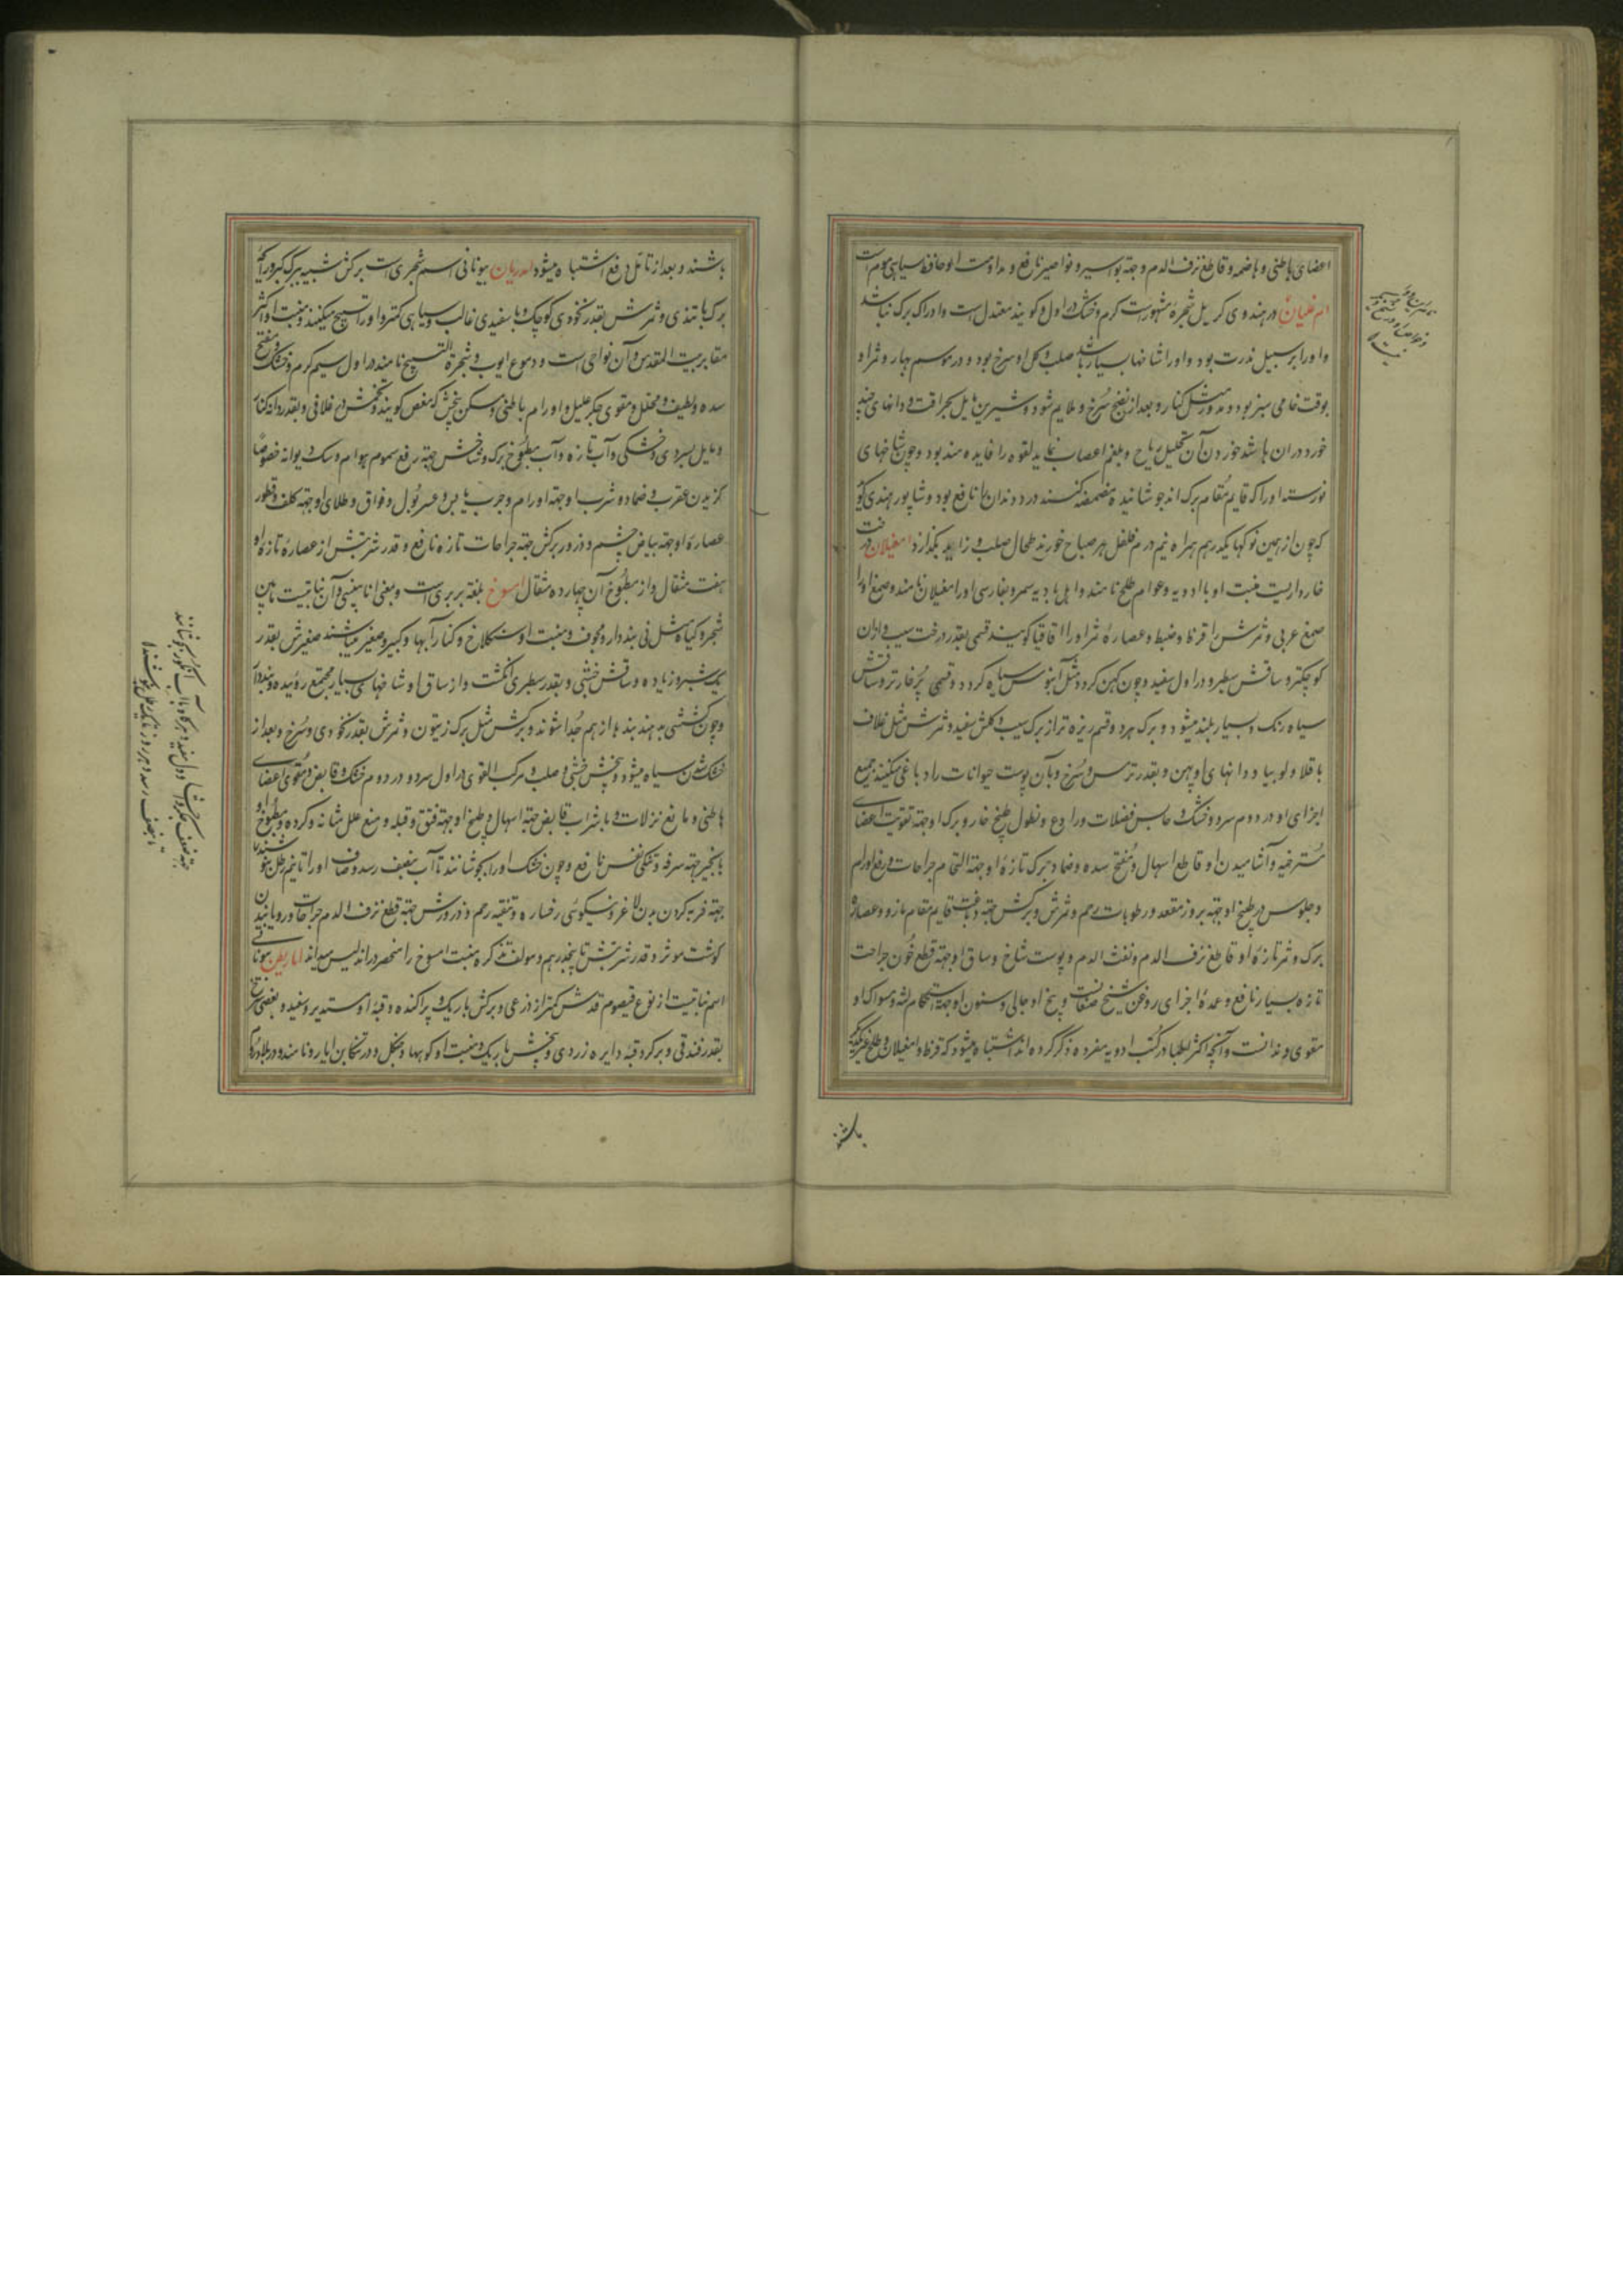 اعضای باطنی و هاضمه و قاطع نزف الدم و جهة بواسیر و نواصیر نافع و مداومت او حافظ سیاهی مو است
ام غلیان در هندوی کریل شجرهٔ مشهورست گرم و خشک در اول و گویند معتدل است و ادراک برک نباشد
و اورا بر سبیل ندرت بود و اورا شاخها بسیار باشد صلب و گل او سرخ بود و در موسم بهار و ثمر او
بوقت خامی سبز بود و مدور مثل کنار و بعد از نضج سرخ و ملایم شود و شیرین مایل بحرافت و دانهای چند
خورد در ان باشد خوردن آن تحلیل ریاح و بلغم اعصاب نماید لقوه را فایده مند بود و چون شاخهای
نورسته اورا که قایم مقام برک اند جوشانیده مضمضه کنند درد دندان را نافع بود و شاپور هندی گوید
که چون از همین نوکها یکدرهم همراه نیم درم فلفل هر صباح خورند طحال صلب و زاید بگدازد امغیلان درخت
خارداریست منبت او بااد ویه و عوام طلح نامند و اهل بادیه سمر و بفارسی اورا مغیلان نامند و صمغ اورا
صمغ عربی و ثمرش را قرظ و ضبط و عصارهٔ ثمر اورا اقاقیا گویند قسمی بقدر درخت سیب و ازان
کوچکتر و ساقش سطبر و در اول سفید و چون کهن گردد مثل آبنوس سیاه گردد و قسمی پرخارتر و ساقش
سیاه رنک و بسیار بلند میشود و برک هر دو قسم ریزه تر از برک سیب و گلش سفید و ثمرش مثل غلاف
باقلا و لوبیا و دانهای او پهن و بقدر ترمس و سرخ و بآن پوست حیوانات را دباغی میکنند جمیع
اجزای او در دوم سرد و خشک و حابس فضلات و رادع و نطول طبیخ خار و برک او جهة تقویت اعضای
مسترخیه و آشامیدن او قاطع اسهال و مفتح سده و ضماد برک تازهٔ او جهة التحام جراحات و رفع اورام
و جلوس در طبیخ او جهة بروز مقعد و رطوبات رحم و ثمرش و برکش جهة دباغت قایم مقام مازو و عصارهٔ
برک و ثمر تازهٔ او قاطع نزف الدم و نفث الدم و پوست شاخ و ساق او جهة قطع خون جراحت
تازه بسیار نافع و عمدهٔ اجزای روغن شیخ صنعانست و بیخ او جالی و سنون او جهة استحکام لثه و مسواک او
مقوی دندانست و آنچه اکثر اطبا در کتب ادویه مفرده ذکر کرده اند اشتباه میشود که قرظ و امغیلان و طلح غیر یکدیگر
باشند
باشند و بعد از تأمل رفع اشتباه میشود امدریان بیونانی اسم شجری است برکش شبیه ببرک کبر و رایحهٔ
برک با تندی و ثمرش بقدر نخودی کوچک و با سفیدی غالب و سیاهی کمتر و اورا تسبیح میکنند و منبت او اکثر
مقابر بیت المقدس و آن نواحی است و دموع ایوب و شجرة التسبیح نامند در اول سیم گرم و خشک و مفتح
سده و لطیف و محلل و مقوی جگر علیل و اورام باطنی و مسکن پیچش که مغص گویند و تخمش در غلافی و بقدر دانه کنار
و مایل بسردی و خشکی و آب تازه و آب مطبوخ برک و شاخش جهة رفع سموم هوام و سک دیوانه خصوصا
گزیدن عقرب و ضماد و شرب او جهة اورام و جرب یابس و عسر بول و فواق و طلای او جهة کلف و قطور
عصارهٔ او جهة بیاض چشم و ذرور برکش جهة جراحات تازه نافع و قدر شربتش از عصارهٔ تازه او
هفت مثقال و از مطبوخ آن چهارده مثقال امسوخ بلغة بربری است و بمعنی انابیبی و آن نباتیست مابین
شجر و گیاه مثل نی بنددار و مجوف و منبت او سنگلاخ و کنار آبها و کبیر و صغیر میباشند صغیرش بقدر
یک شبر و زیاده و ساقش خشبی و بقدر سطبری انگشت و از ساق او شاخهای بسیار مجتمع روییده و بنددار
و چون کشتی به بند بندها از هم جدا شوند و برکش مثل برک زیتون و ثمرش بقدر نخودی و سرخ و بعد از
خشک شدن سیاه میشود و بیخش خشبی و صلب و مرکب القوی در اول سرد و در دوم خشک و قابض و مقوی اعضای
باطنی و مانع نزلات و با شراب قابض جهة اسهال و طبیخ او جهة فتق و قیله و منع علل مثانه و گرده و مطبوخ او
با انجیر جهة سرفه و تنگی نفس نافع و چون خشک اورا بجوشانند تا آب بنصف رسد و صاف اورا تا نیم رطل بنوشند
جهة فربه کردن بدن لاغر و نیکوئی رخساره و تنقیه رحم و ذرورش جهة قطع نزف الدم جراحات و رویانیدن
گوشت موثر و قدر شربتش تا پنجدرهم و مولف تذکره منبت امسوخ را منحصر در اندلس میداند امارنطن بیونانی
اسم نباتیست از نوع قیصوم قدش کمتر از ذرعی و برکش باریک و پراکنده و قبهٔ او مستدیر و سفید و بعضی سرخ
بقدر فندقی و بر گرد قبهٔ دایره زردی و بیخش باریک و منبت او کوهها و جنگل و در تنکابن ایارونا مند و در بلاد روم